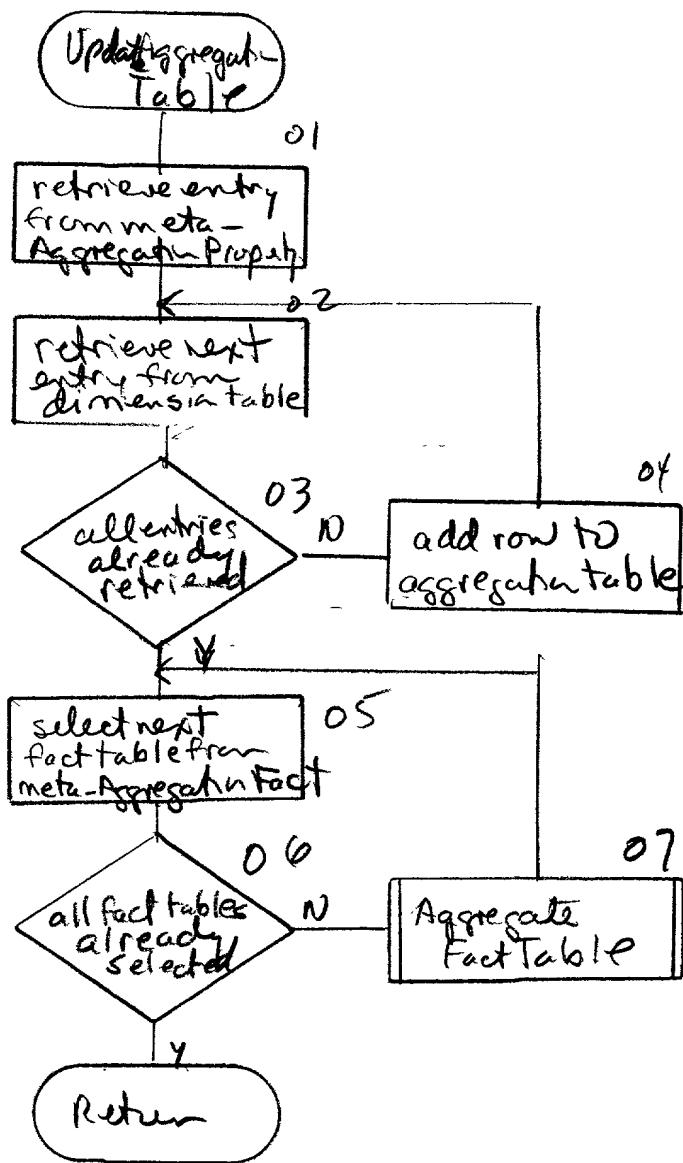 Update Aggregation
Table
01
retrieve entry
from meta-
Aggregation Property
02
retrieve next
entry from
dimension table
03
all entries
already
retrieved
N
04
add row to
aggregation table
Y
05
select next
fact table from
meta-Aggregation Fact
06
all fact tables
already
selected
N
07
Aggregate
Fact Table
Y
Return